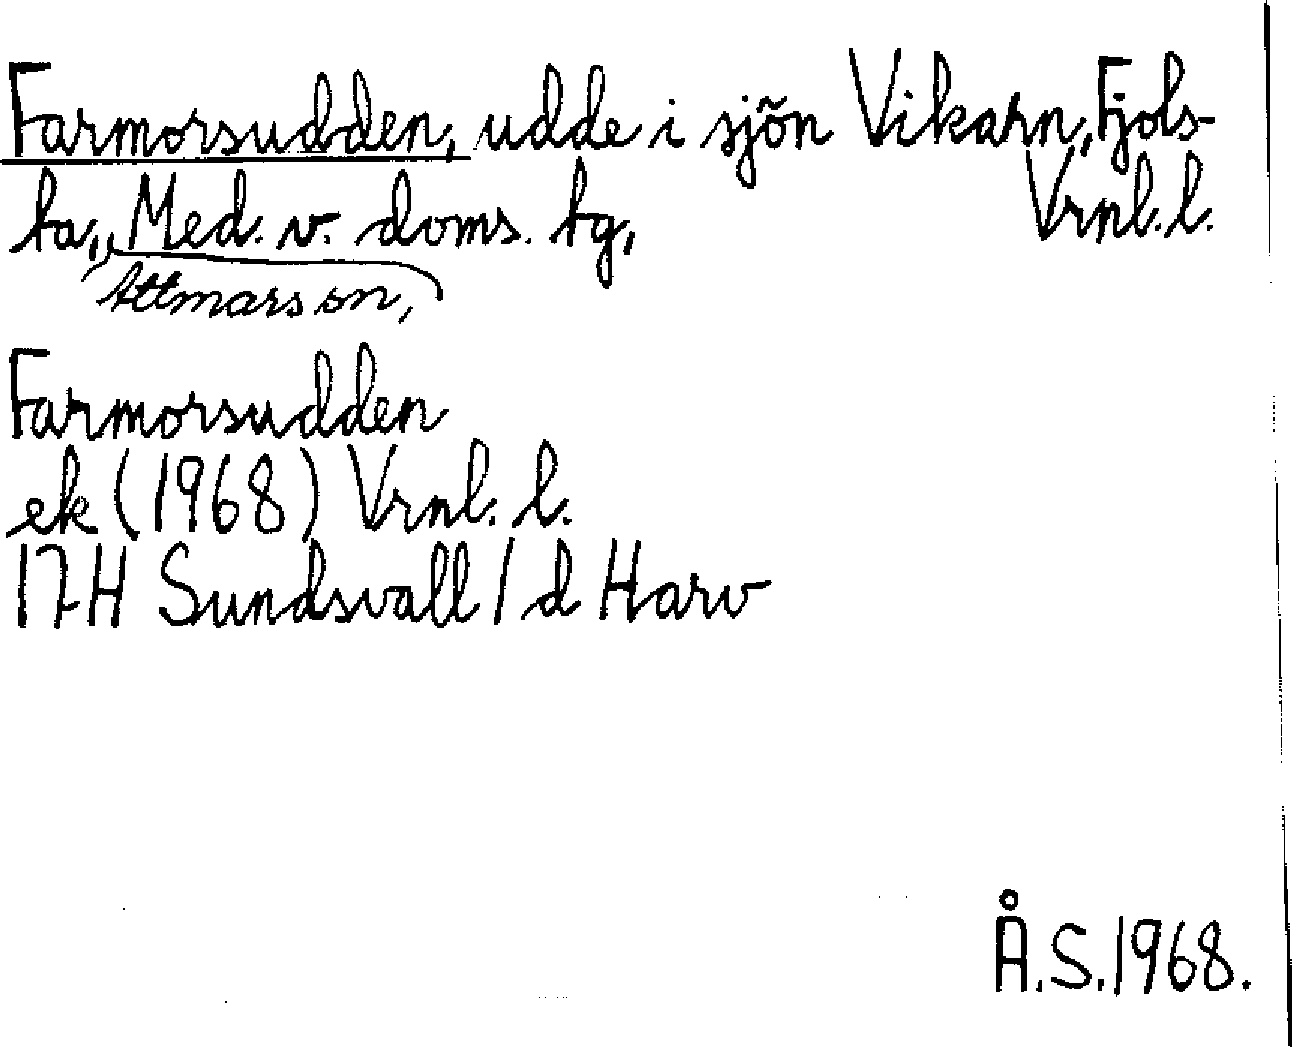 Farmorsudden, udde i sjön Vikarn, Fjols-
ta, Med. v. doms. tg, Vrnl. l.
Attmars sn,
Farmorsudden
ek (1968) Vrnl. l.
17H Sundsvall / d Harv
Å.S. 1968.